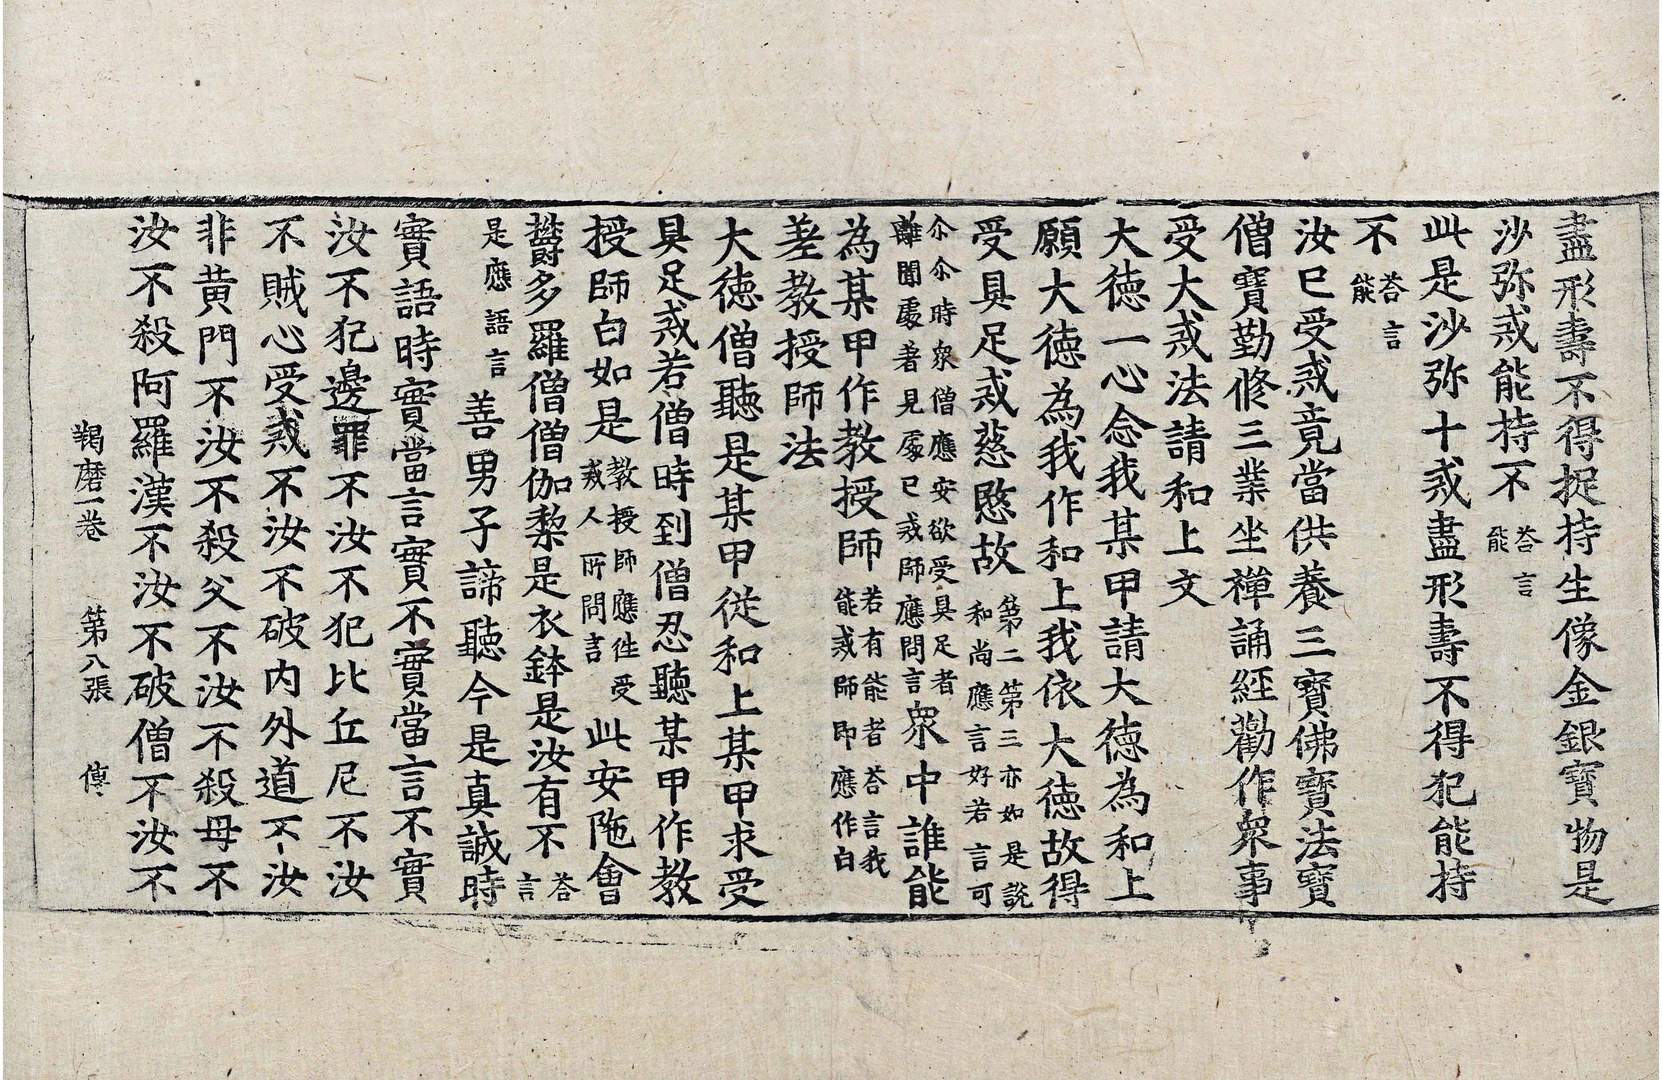 盡形壽不得捉持生像金銀寶物是
沙弥戒能持不答言能
此是沙弥十戒盡形壽不得犯能持
不答言能
汝已受戒竟當供養三寶佛寶法寶
僧寶勤修三業坐禪誦經勸作衆事
受大戒法請和上文
大德一心念我某甲請大德為和上
願大德為我作和上我依大德故得
受具足戒慈愍故第二第三亦如是說和尚應言好若言可
尒尒時衆僧應安欲受具足者離聞處著見處已戒師應問言衆中誰能
為某甲作教授師若有能者答言我能戒師即應作白
差教授師法
大德僧聽是某甲從和上某甲求受
具足戒若僧時到僧忍聽某甲作教
授師白如是教授師應往受戒人所問言此安陁會
欝多羅僧僧伽梨是衣鉢是汝有不答言
是應語言善男子諦聽今是真誠時
實語時實當言實不實當言不實
汝不犯邊罪不汝不犯比丘尼不汝
不賊心受戒不汝不破內外道不汝
非黃門不汝不殺父不汝不殺母不
汝不殺阿羅漢不汝不破僧不汝不
羯磨一卷　第八張　傳